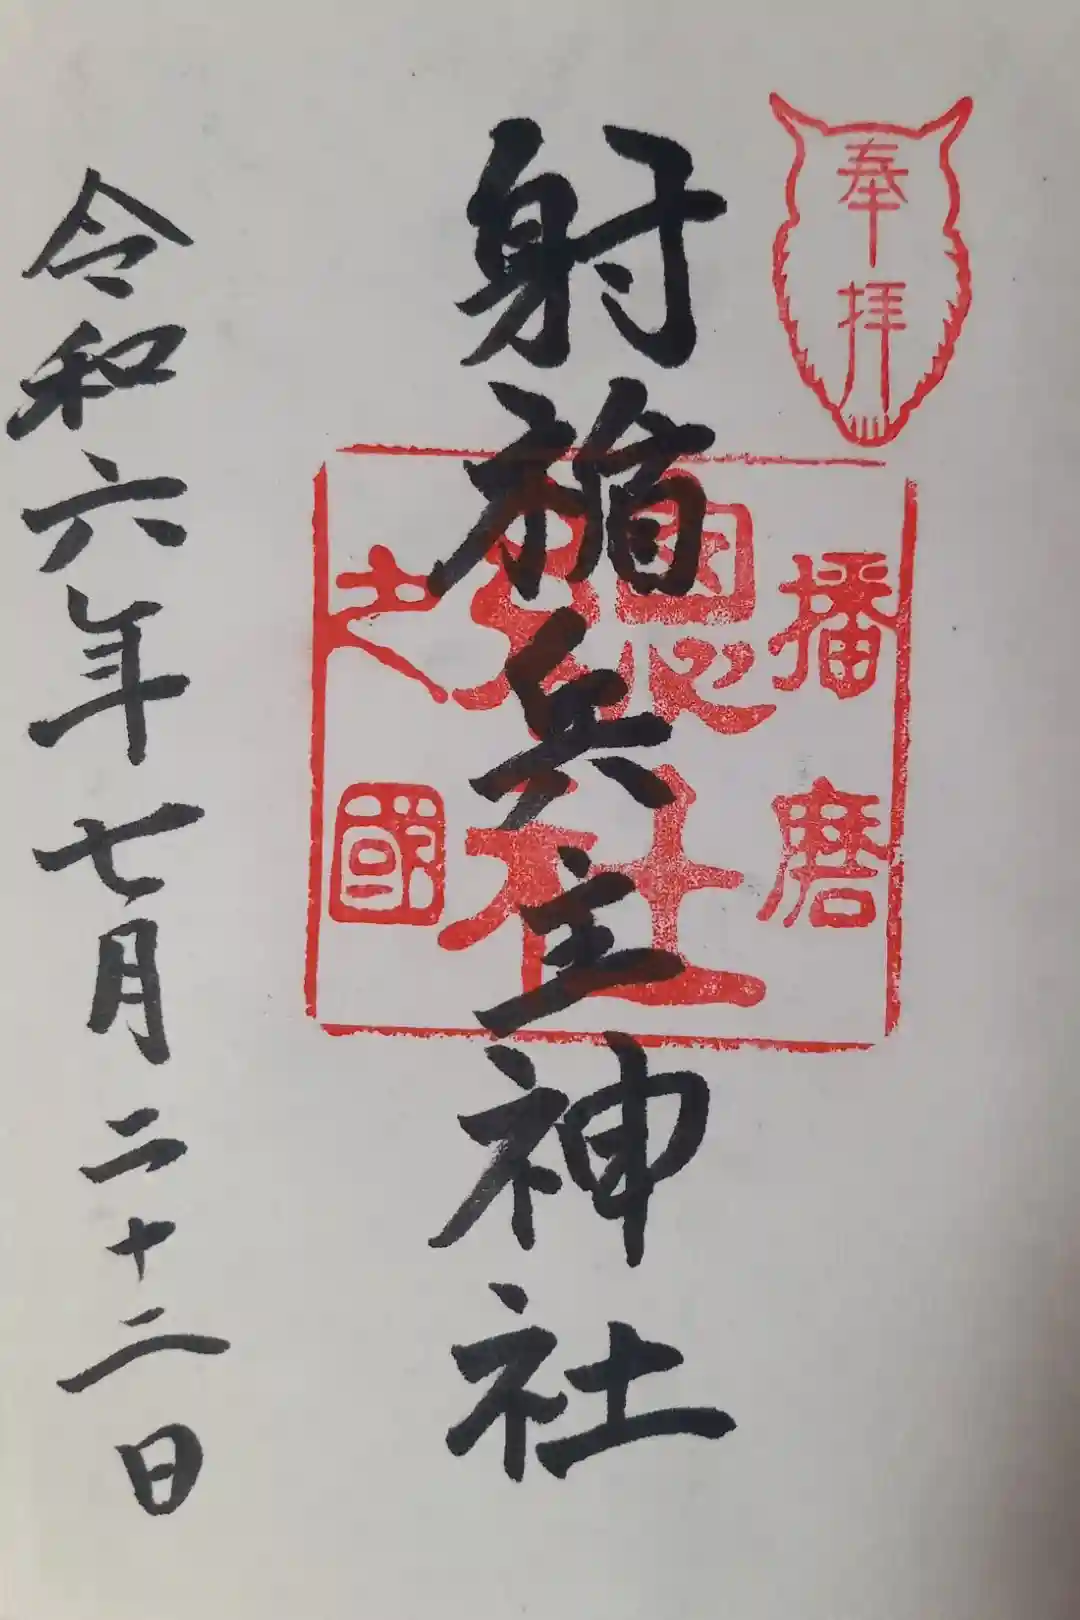 奉拝
播磨
總社
之國
射楯兵主神社
令和六年七月二十二日